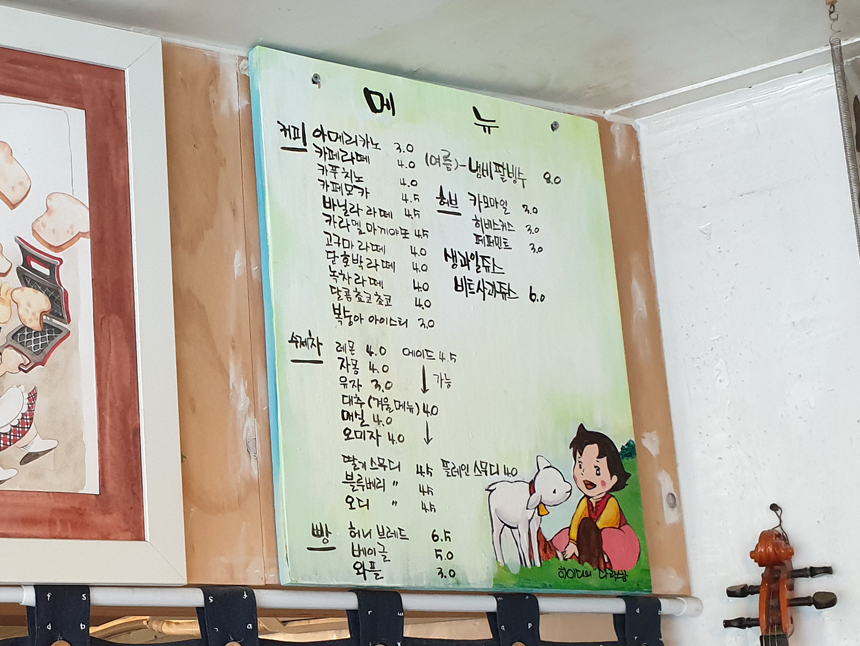 메뉴
커피 아메리카노 3.0
카페라떼 4.0
카푸치노 4.0
카페모카 4.5
바닐라 라떼 4.5
카라멜 마끼아또 4.5
고구마 라떼 4.0
단호박 라떼 4.0
녹차 라떼 4.0
달콤 초코초코 4.0
복숭아 아이스티 3.0
(여름)-냄비 팥빙수 8.0
허브 카모마일 3.0
히비스커스 3.0
페퍼민트 3.0
생과일 쥬스
비트사과쥬스 6.0
수제차 레몬 4.0 에이드 4.5
자몽 4.0
유자 3.0 가능
대추 (겨울메뉴) 4.0
매실 4.0
오미자 4.0
딸기 스무디 4.5 플레인 스무디 4.0
블루베리 " 4.5
오디 " 4.5
빵 허니 브레드 6.5
베이글 5.0
와플 3.0
하이디의 다락방